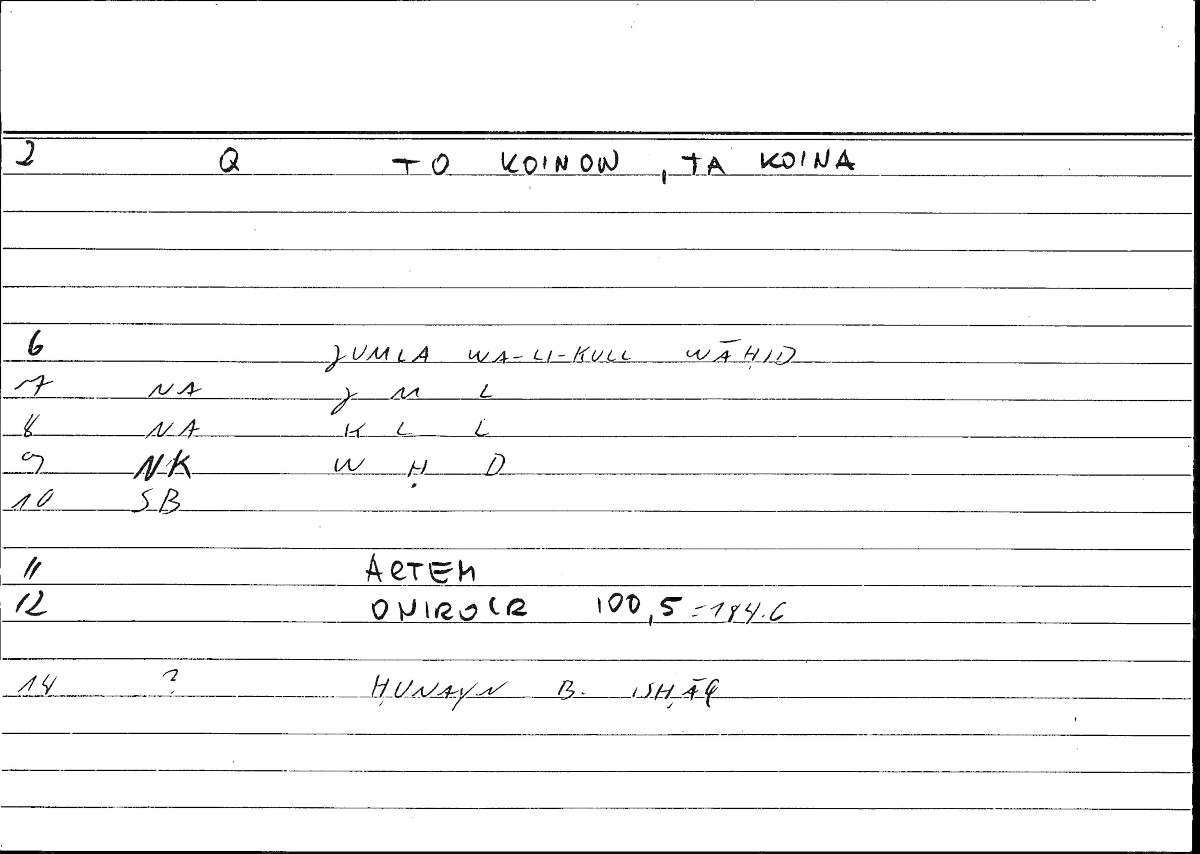 2 Q TO KOINON, TA KOINA
6 JUMLA WA-LI-KULL WĀḤID
7 NA J M L
8 NA K L L
9 NK W Ḥ D
10 SB
11 ARTEM
12 ONIROCR 100,5 =184.6
14 ? ḤUNAYN B. ISḤĀQ